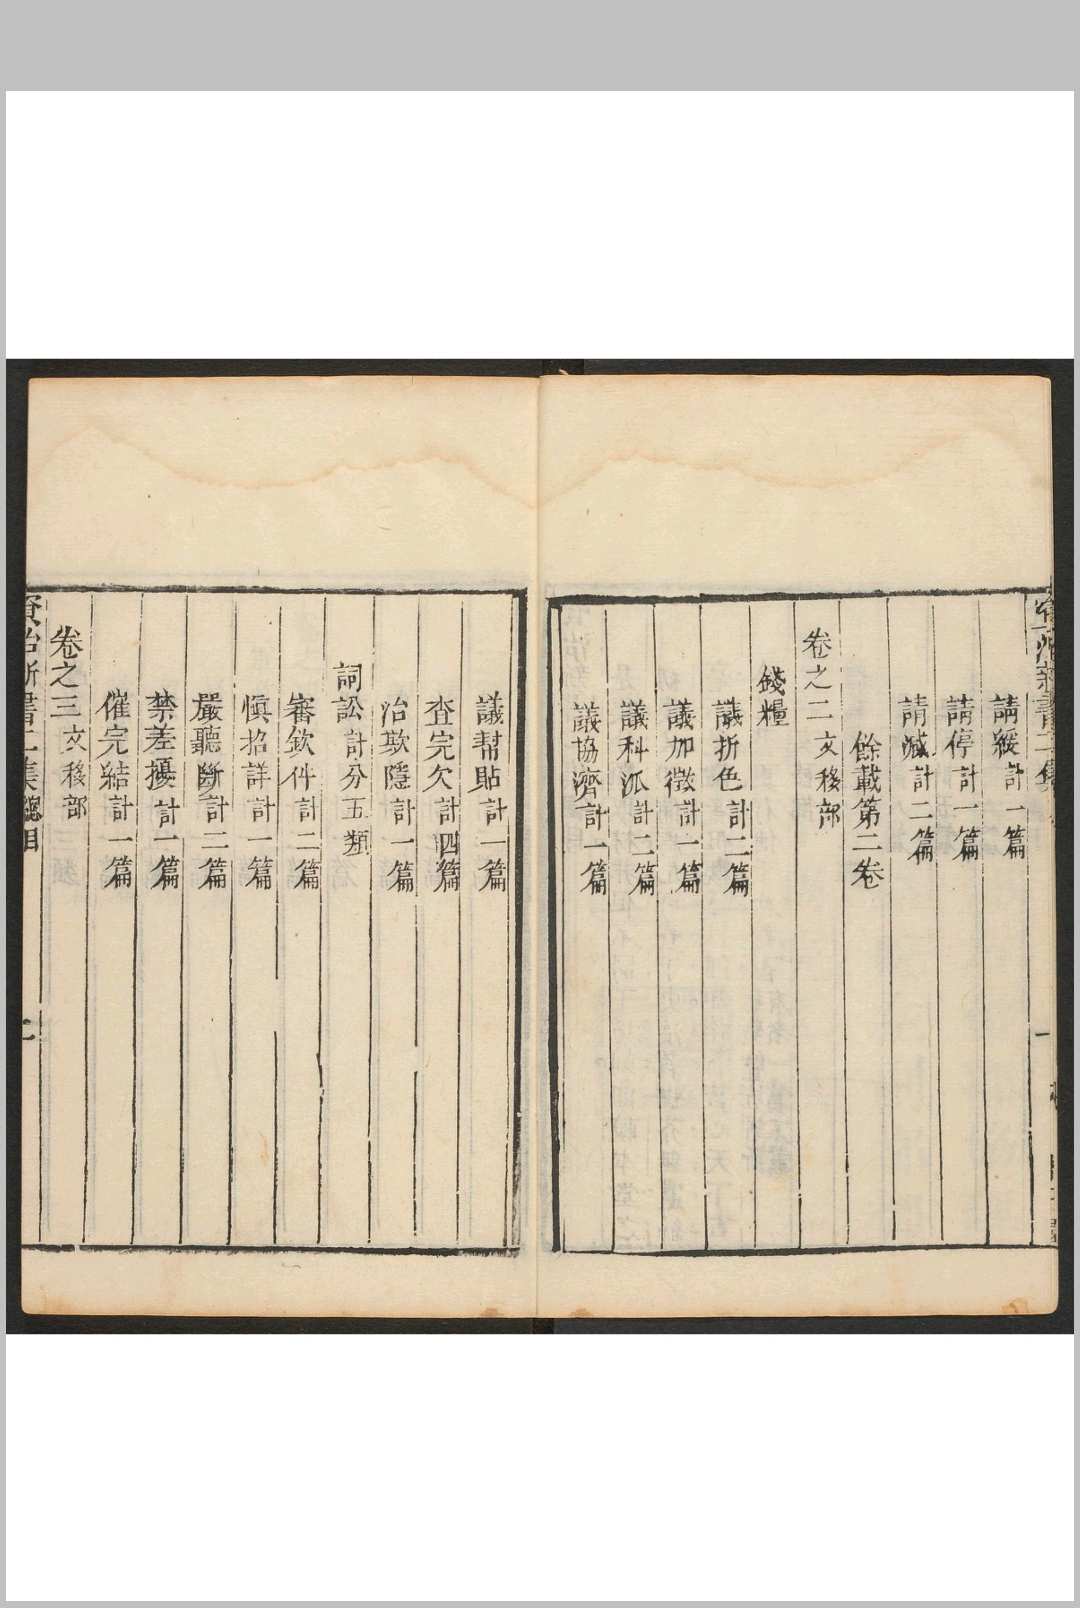 請緩計一篇
請停計一篇
請減計二篇
餘載第二卷
卷之二文移部
錢糧
議折色計二篇
議加徵計一篇
議科派計二篇
議協濟計一篇
議幫貼計一篇
查完欠計四篇
治欺隱計一篇
詞訟計分五類
審欽件計二篇
慎招詳計一篇
嚴聽斷計二篇
禁差擾計一篇
催完結計一篇
卷之三文移部
資治新書二集總目